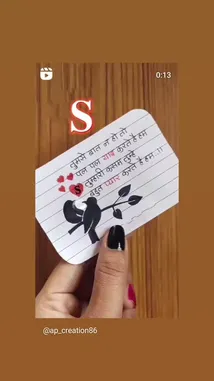 0:13
S
तुमसे बात न हो तो
पल पल याद करते है हम
S तुम्हारी कसम तुम्हे
बहुत प्यार करते है हम..!!
@ap_creation86